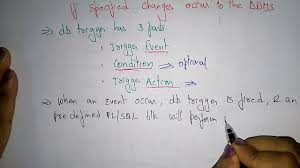 if specified changes occur to the DBMS
⇒ db trigger has 3 parts
. Trigger Event
. Condition ⇒ optional
. Trigger Action ⇒
⇒ When an Event occur, db trigger is fired, & an
predefined PL/SQL blk will perform